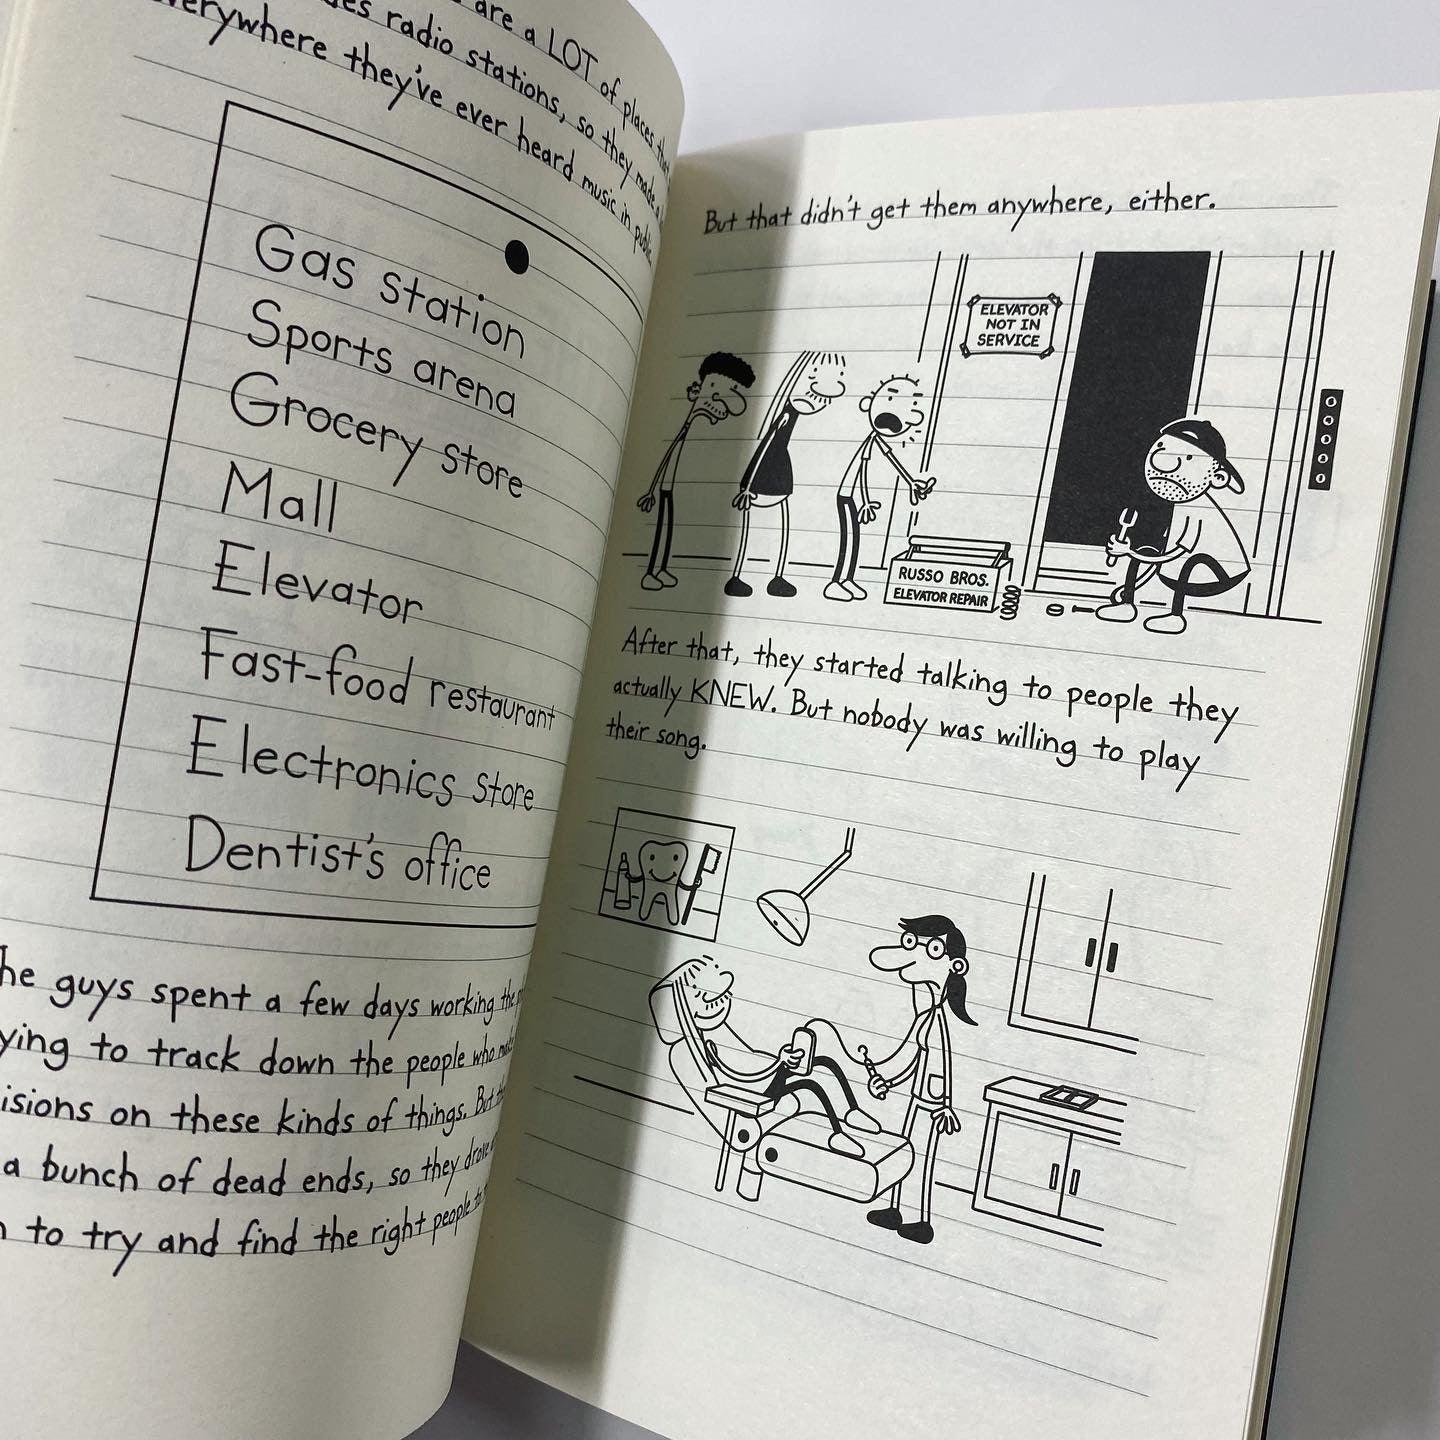 are a LOT of places that
radio stations, so they made a
everywhere they've ever heard music in public.
Gas station
Sports arena
Grocery store
Mall
Elevator
Fast-food restaurant
Electronics store
Dentist's office
guys spent a few days working the
to track down the people who
on these kinds of things. But
a bunch of dead ends, so they drove
to try and find the right people
But that didn't get them anywhere, either.
ELEVATOR
NOT IN
SERVICE
RUSSO BROS.
ELEVATOR REPAIR
After that, they started talking to people they
actually KNEW. But nobody was willing to play
their song.